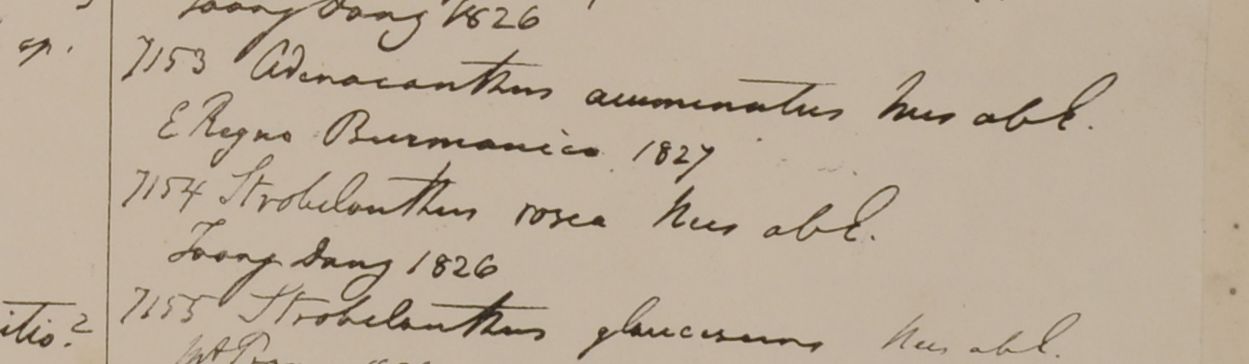 Toong Dong 1826
sp.
7153 Adenacanthus acuminatus Nees ab E.
E Regno Burmanico 1827
7154 Strobilanthus rosea Nees ab E.
Toong Dong 1826
itio?
7155 Strobilanthus glaucescens Nees ab E.